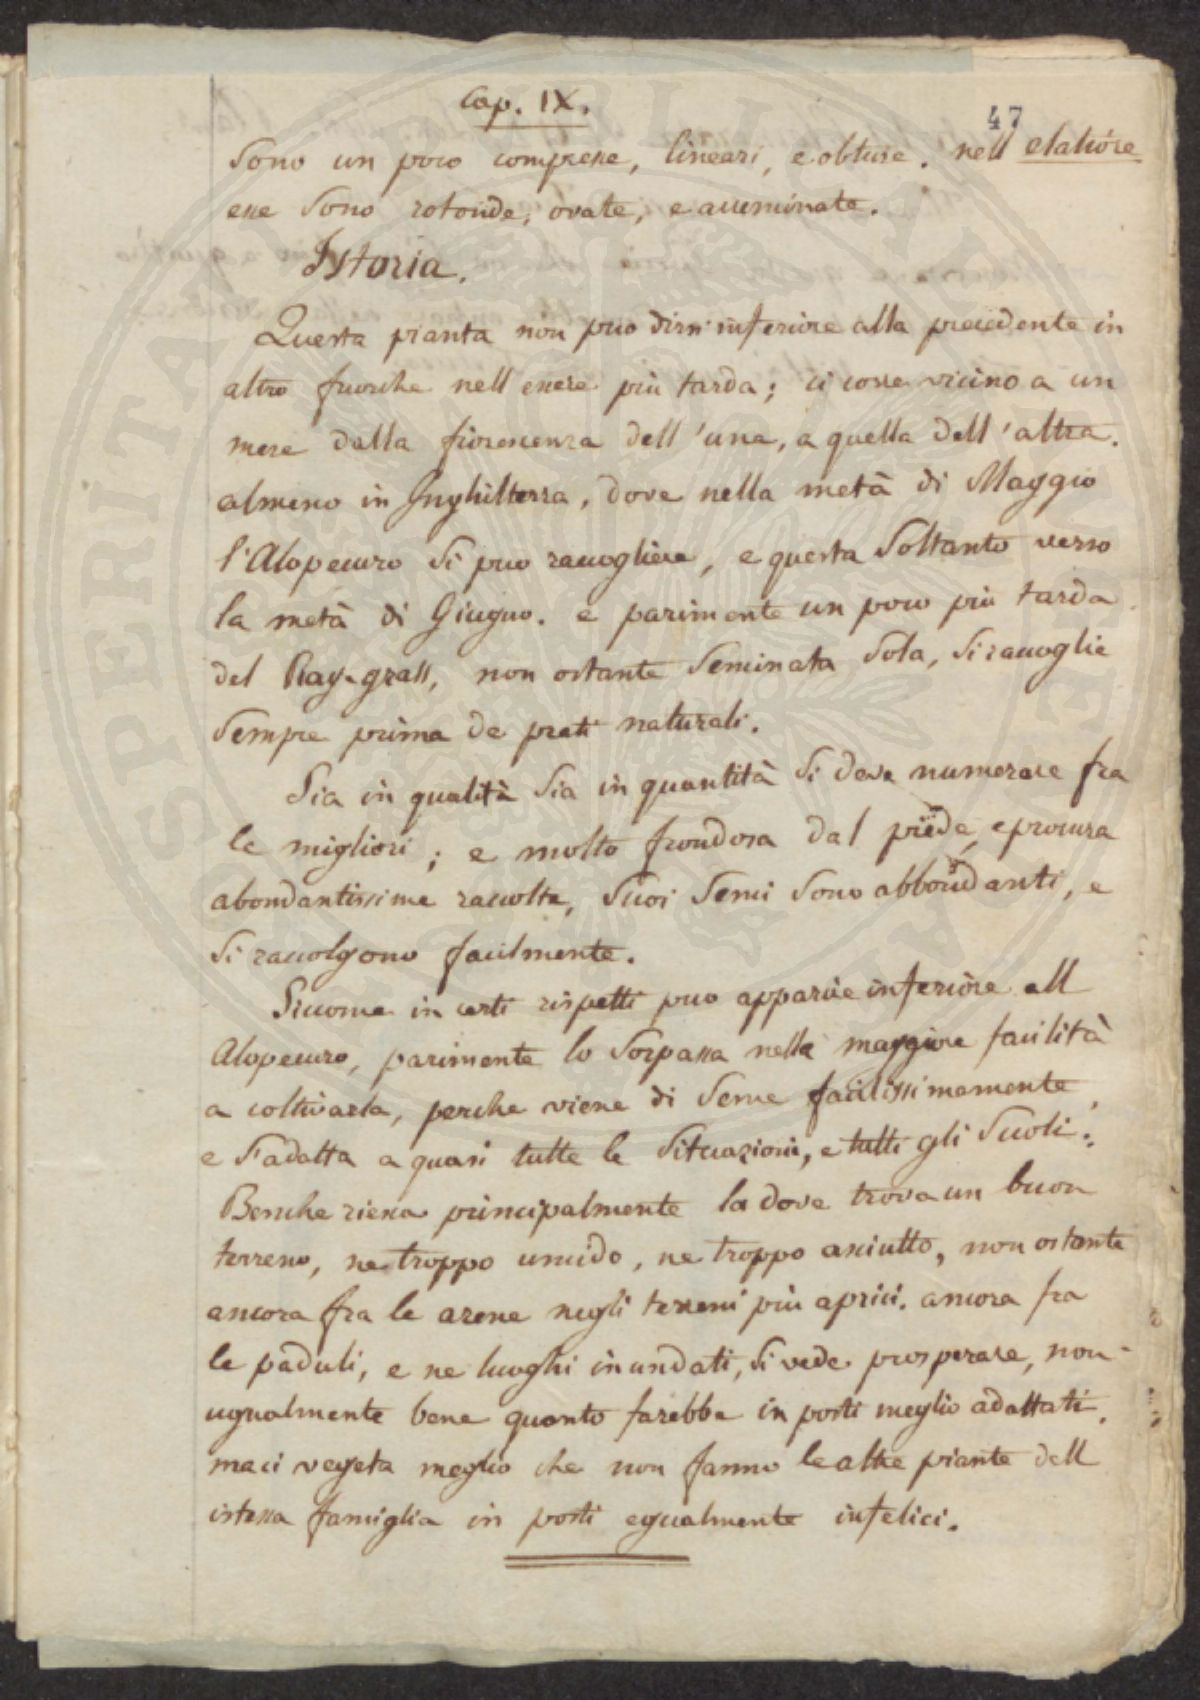 Cap. IX.
47
Sono un poco compresse, lineari, e obtuse. nell elatiore
esse sono rotonde, ovate, e accuminate.
Istoria.
Questa pianta non puo dirsi inferiore alla precedente in
altro fuorche nell essere più tarda; ci corre vicino a un
mese dalla fiorescenza dell'una, a quella dell'altra.
almeno in Inghilterra, dove nella metà di Maggio
l'Alopecuro si puo raccogliere, e questa Soltanto verso
la metà di Giugno. e parimente un poco più tarda
del Ray-grass, non ostante Seminata Sola, Si raccoglie
Sempre prima de prati naturali.
Sia in qualità Sia in quantità Si deve numerare fra
le migliori; e molto frondosa dal piede, e procura
abondantissime raccolte, Suoi Semi Sono abbondanti, e
Si raccolgono facilmente.
Siccome in certi rispetti puo apparire inferiore all
Alopecuro, parimente lo Sorpassa nella maggiore facilità
a coltivarla, perche viene di Seme facilissimamente,
e S'adatta a quasi tutte le Situazioni, e tutti gli Suoli:
Benche riesca principalmente la dove trova un buon
terreno, ne troppo umido, ne troppo asciutto, non ostante
ancora fra le arene negli terreni più aprici. ancora fra
le paduli, e ne luoghi inundati, Si vede prosperare, non
ugualmente bene quanto farebbe in posti meglio adattati,
ma ci vegeta meglio che non fanno le altre piante dell
istessa famiglia in posti egualmente infelici.
SPERITAT PUBLICAE